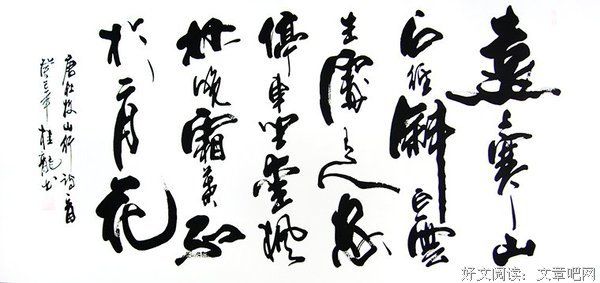 遠上寒山
石徑斜白雲
生處有人家
停車坐愛楓
林晚霜葉紅
於二月花
唐杜牧山行詩一首
癸巳年桂龍書
好文阅读：文章吧网